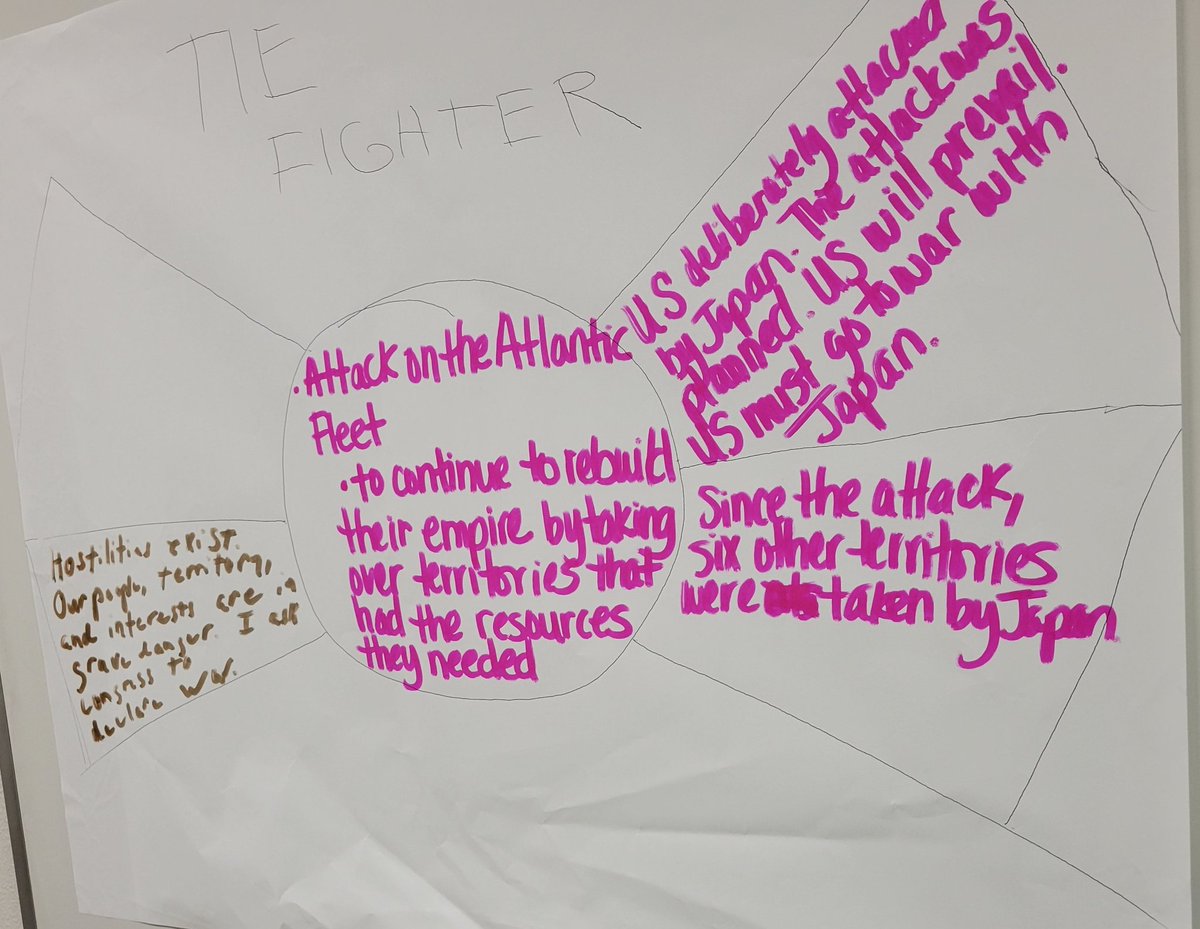 TIE
FIGHTER
US deliberately attacked
by Japan. The attack was
planned. US will prevail.
US must go to war with
Japan.
• Attack on the Atlantic
Fleet
• to continue to rebuild
their empire by taking
over territories that
had the resources
they needed
Since the attack,
six other territories
were taken by Japan
Hostilities exist.
Our people, territory,
and interests are in
grave danger. I ask
congress to
declare war.